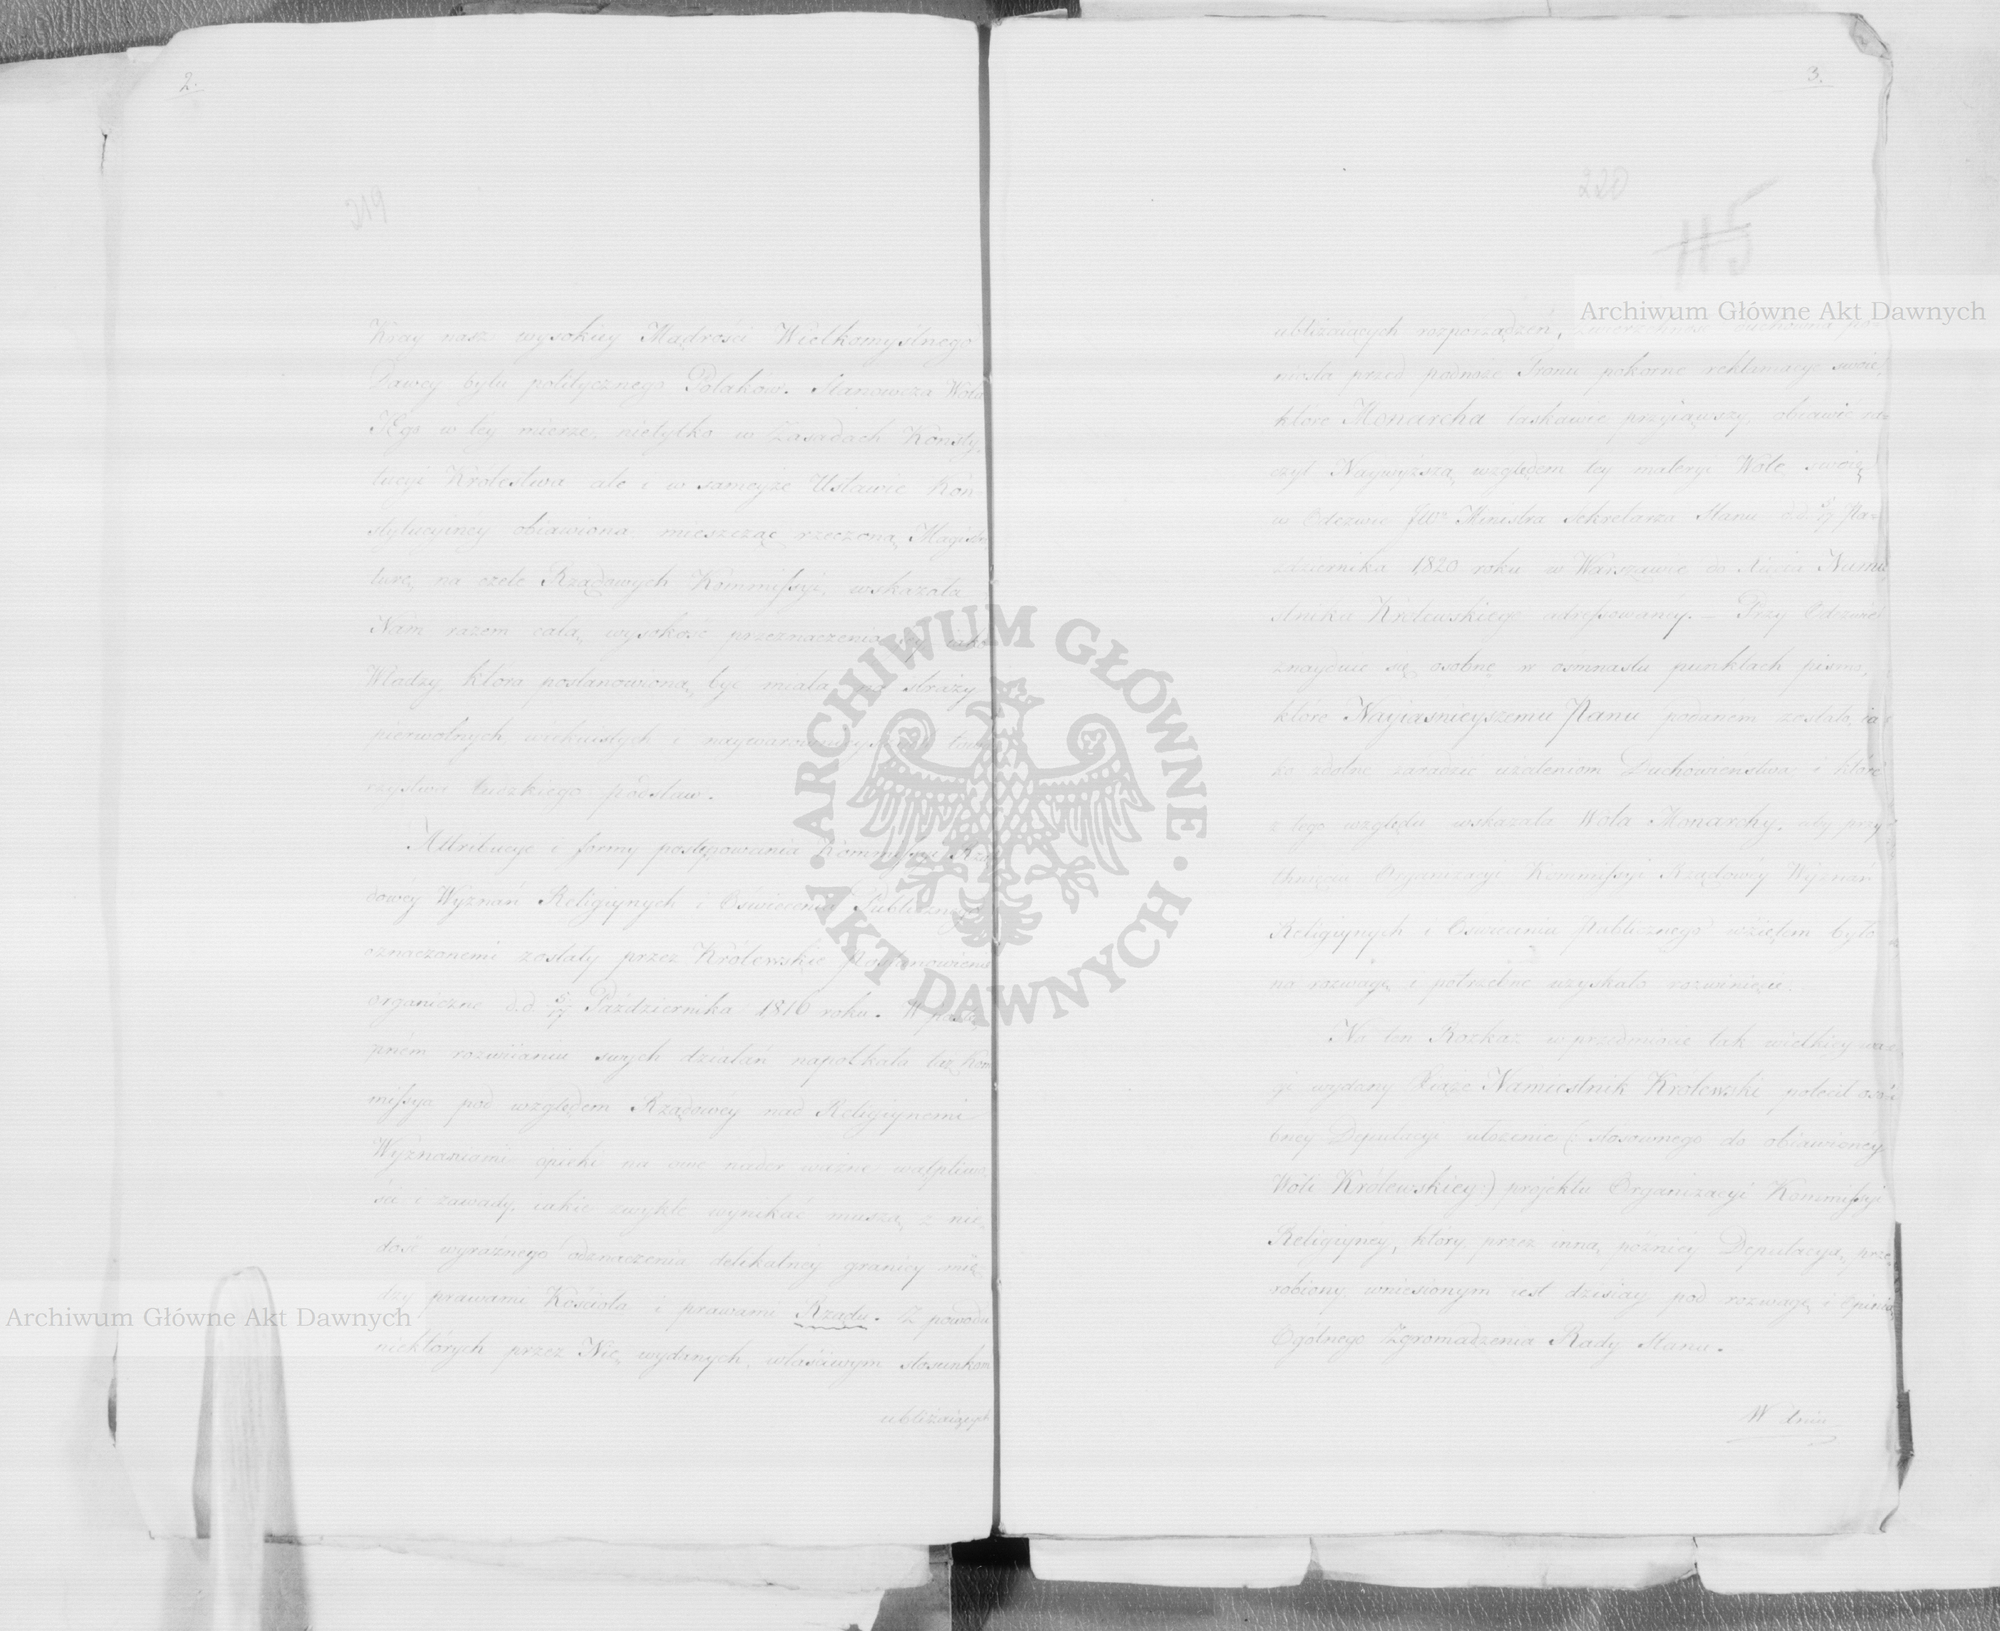 2.
Kray nasz wysokiey Mądrości Wielkomyślnego
Dawcy bytu politycznego Polaków. Stanowcza Wola
JEgo w tey mierze, nietylko w Zasadach Konsty,
tucyi Królestwa ale i w sameyże Ustawie Kon
stytucyiney obiawiona, mieszcząc rzeczoną Magistra
turę, na czele Rządowych Kommissyi, wskazała
Nam razem całą wysokość przeznaczenia iey, iako
Władzy która postanowioną być miała na straży
pierwotnych wiekuistych i naywarownieyszych towa
rzystwa ludzkiego podstaw.
Attribucye i formy postępowania Kommissyi Rzą
dowéy Wyznań Religiynych i Oświecenia Publicznego
oznaczonemi zostały przez Królewskie Postanowienie
organiczne d.d. 5/17 Października 1816 roku. W postę
pném rozwiianiu swych działań napotkała też Kom
missya pod względem Rządowéy nad Religiynemi
Wyznaniami opieki na owe nader ważne wątpliwo
ści i zawady, iakie zwykle wynikać muszą z nie,
dość wyraźnego odznaczenia delikatney granicy mię,
dzy prawami Kościoła i prawami Rządu. Z powodu
niektórych przez Nię wydanych, właściwym stosunkom
ubliżaiących
3.
ubliżaiących rozporządzeń, zwierzchność duchowna po,
niosła przed podnoże Tronu pokorne reklamacye swoie,
które Monarcha łaskawie przyiąwszy, obiawić ra,
czył Naywyższą względem tey materyi Wolę swoię
w Odezwie JWo Ministra Sekretarza Stanu d.d. 5/17 Pa,
ździernika 1,820 roku w Warszawie do Xięcia Namie
stnika Królewskiego adressowanéy. — Przy Odezwie
znayduie się osobne w osmnastu punktach pismo,
które Nayiaśnieyszemu Panu podanem zostało, ia
ko zdolne zaradzić użaleniom Duchowieństwa i które
z tego względu wskazała Wola Monarchy, aby przy
Organizacyi Kommissyi Rządowéy Wyznań
Religiynych i Oświecenia Publicznego wziętem było
na rozwagę i potrzebne uzyskało rozwinięcie.
Na ten Rozkaz w przedmiocie tak wielkiey wa
gi wydany Xiąże Namiestnik Królewski polecił oso
bney Deputacyi ułożenie (: stosownego do obiawioney
Woli Królewskiey :) projektu Organizacyi Kommissyi
Religiyney, który, przez inną, pozniey Deputacyą, prze,
robiony, wniesionym iest dzisiay pod rozwagę i Opinią
Ogólnego Zgromadzenia Rady Stanu.
W dniu
Archiwum Główne Akt Dawnych
Archiwum Główne Akt Dawnych
ARCHIWUM GŁÓWNE
AKT DAWNYCH